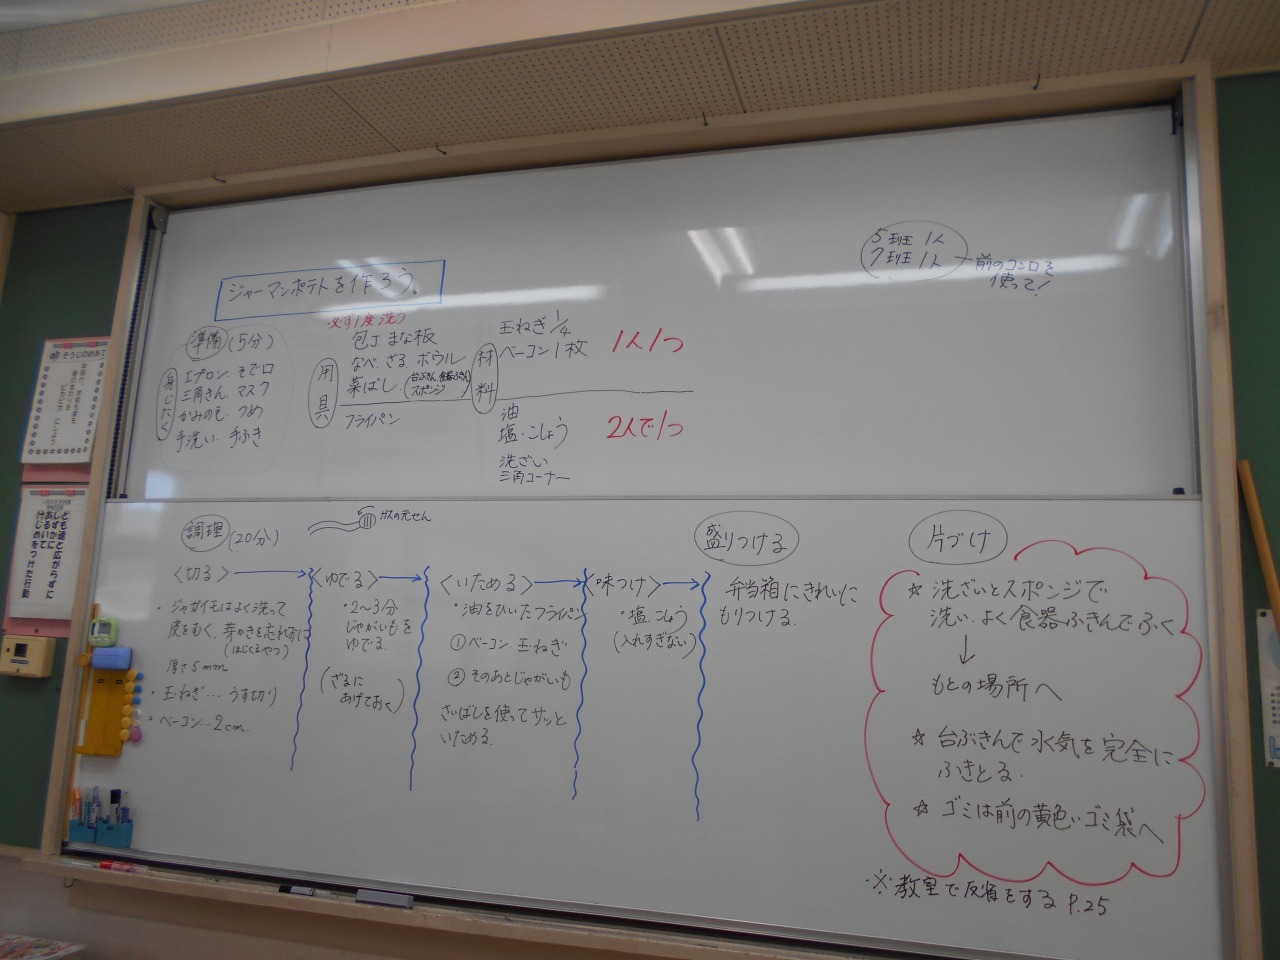 ジャーマンポテトを作ろう。
準備 (5分)
身じたく
エプロン、そで口
三角きん、マスク
かみのも、つめ
手洗い、手ふき
必ず1度洗う
用具
包丁 まな板
なべ、ざる ボウル
菜ばし、(台ぶきん、食器ぶきん
スポンジ)
フライパン
材料
玉ねぎ 1/4
ベーコン1枚
1人1つ
油
塩・こしょう
2人で1つ
洗ざい
三角コーナー
5班 1人
7班 1人
前のコンロを
使って!
調理 (20分)
ガスの元せん
〈切る〉
・ジャガイモはよく洗って
皮をむく、芽かきを忘れずに
(はじくるやつ)
厚さ5mm
・玉ねぎ…うす切り
・ベーコン…2cm.
〈ゆでる〉
・2〜3分
じゃがいもを
ゆでる.
(ざるに
あげておく)
〈いためる〉
・油をひいたフライパン
① ベーコン、玉ねぎ
② そのあとじゃがいも
さいばしを使ってサッと
いためる.
〈味つけ〉
・塩、こしょう
(入れすぎない)
盛りつける
弁当箱にきれいに
もりつける.
片づけ
☆ 洗ざいとスポンジで
洗い、よく食器ぶきんでふく
↓
もとの場所へ
☆ 台ぶきんで水気を完全に
ふきとる.
☆ ゴミは前の黄色いゴミ袋へ
※教室で反省をする P.25
そうじのめあて
とも達と広がらずに
しずかに
あるいて
けじめをつけた行動